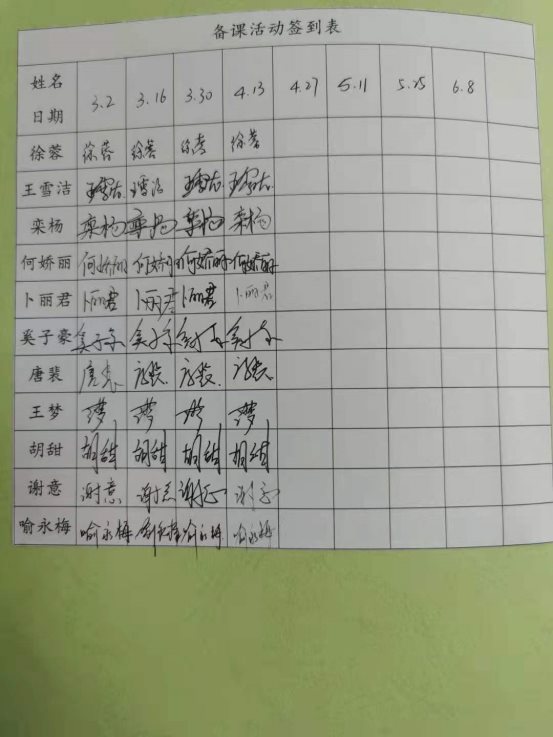 备课活动签到表
姓名
日期 3.2 3.16 3.30 4.13 4.27 5.11 5.25 6.8
徐蓉 徐蓉 徐蓉 徐蓉 徐蓉
王雪洁 王雪洁 王雪洁 王雪洁 王雪洁
栾杨 栾杨 栾杨 栾杨 栾杨
何娇丽 何娇丽 何娇丽 何娇丽 何娇丽
卜丽君 卜丽君 卜丽君 卜丽君 卜丽君
奚子豪
唐裴 唐裴
王梦
胡甜 胡甜 胡甜 胡甜 胡甜
谢意 谢意 谢意 谢意 谢意
喻永梅 喻永梅 喻永梅 喻永梅 喻永梅